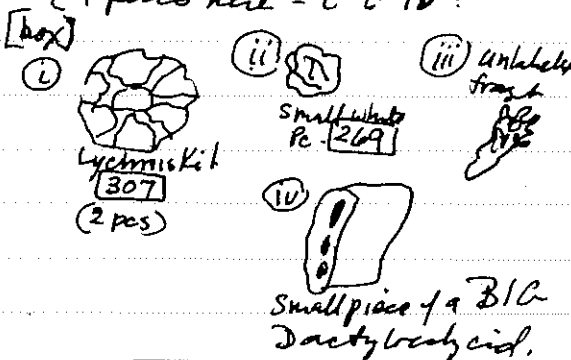 (4 pieces here - i - iv.
[box]
i
Lychniskil
307
(2 pcs)
ii
Small white
Pc. 269
iii unlabeled
fragt
iv
Small piece of a BIG
Dactylocalycid.